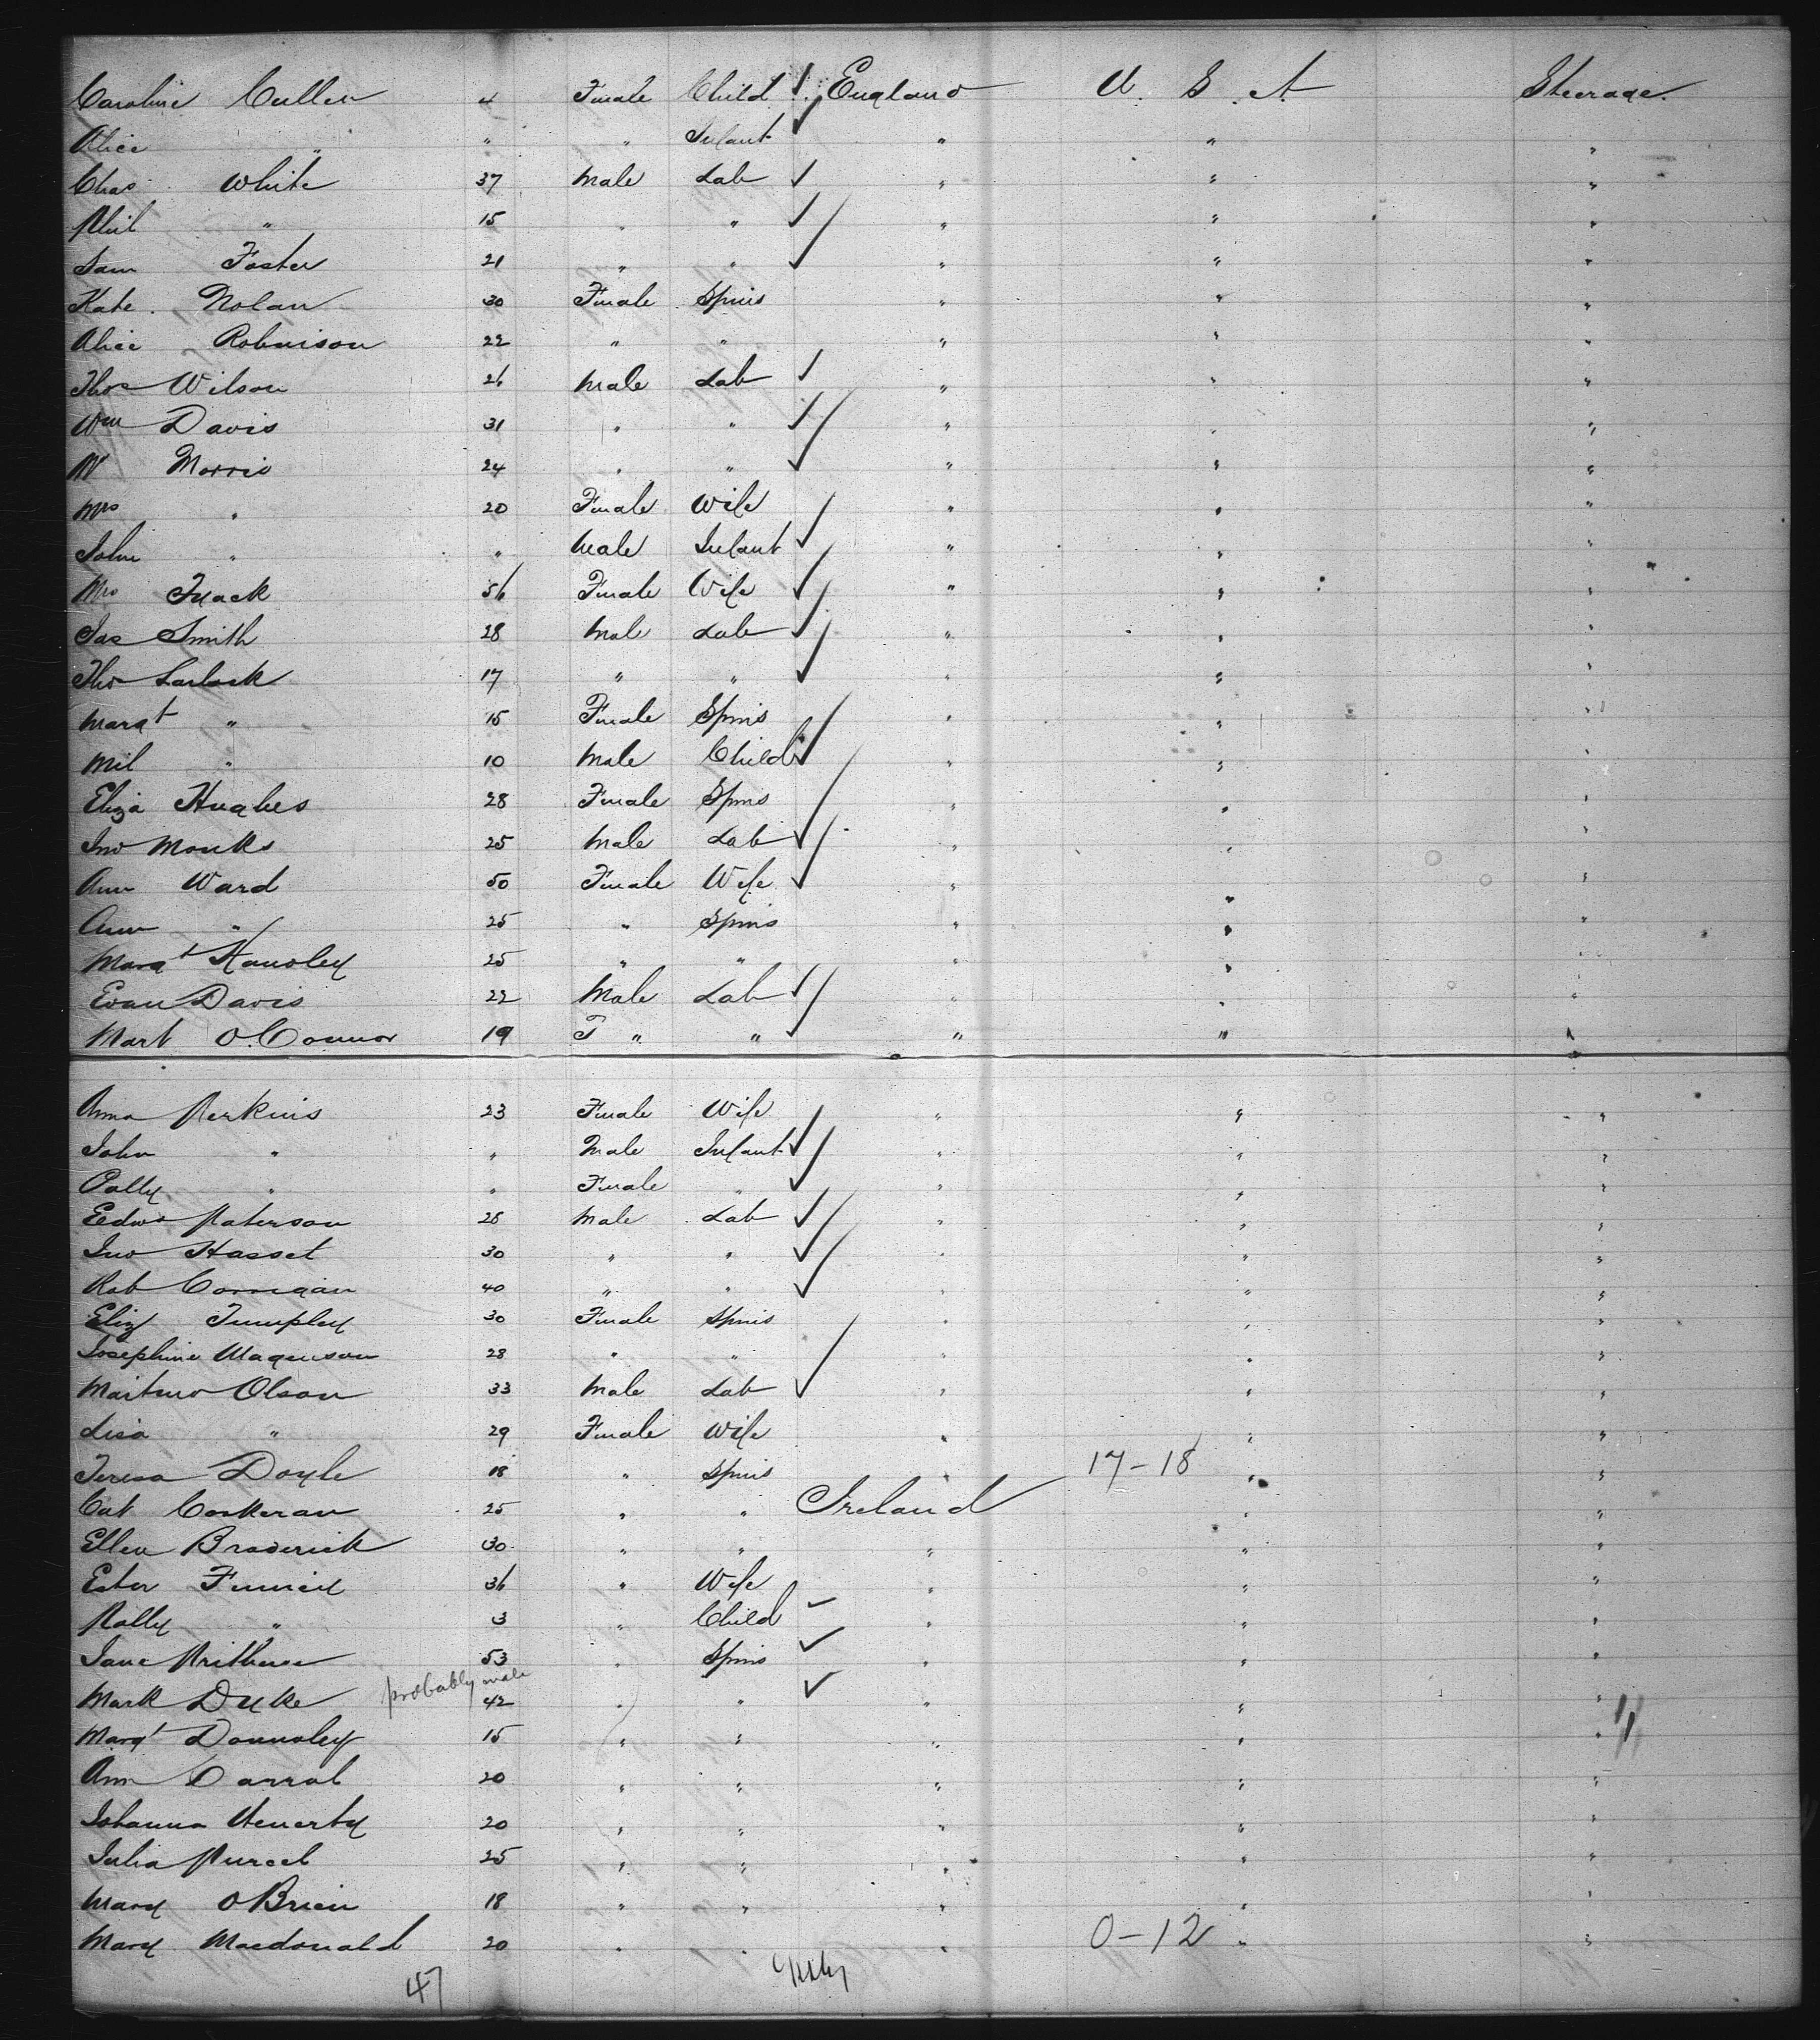 Caroline Cullen 4 Female Child England U. S. A Steerage.
Alice " " " Infant " " "
Chas White 37 Male Lab " " "
Phil " 15 " " " " "
Sam Foster 21 " " " " "
Kate Nolan 30 Female Spins " " "
Alice Robinson 22 " " " " "
Thos Wilson 26 Male Lab " " "
Wm Davis 31 " " " " "
W Morris 24 " " " " "
Mrs " 20 Female Wife " " "
John " " Male Infant " " "
Mrs 56 Female Wife " " "
Jas Smith 28 Male Lab " " "
Tho 17 " " " " "
Margt " 15 Female Spins " " "
Mil " 10 Male Child " " "
Eliza Hughes 28 Female Spins " " "
Jno Monks 25 Male Lab " " "
Ann Ward 50 Female Wife " " "
Ann " 25 " Spins " " "
Margt 25 " " " " "
Evan Davis 22 Male Lab " " "
Mart O.Connor 19 F " " " " "
Anna Perkins 23 Female Wife " " "
John " " Male Infant " " "
Polly " " Female " " " "
Edwd Paterson 28 Male Lab " " "
Jno Hasset 30 " " " " "
Rob Corrigan 40 " " " " "
Eliz 30 Female Spins " " "
Josephine Magenson 28 " " " " "
Olson 33 Male Lab " " "
Lisa " 29 Female Wife " " "
Teresa Doyle 18 " Spins " 17-18 " "
Cat Corkeran 25 " " Ireland " "
Ellen Broderick 30 " " " " "
Ester 36 " Wife " " "
Polly " 3 " Child " " "
Jane 53 " Spins " " "
Mark Duke probably male 42 " " " " "
Margt Donnoley 15 " " " " "
Ann Carrol 20 " " " " "
Johanna Henerty 20 " " " " "
Julia Purcel 25 " " " " "
Mary OBrien 18 " " " " "
Mary Macdonald 20 " " " 0-12 " "
47